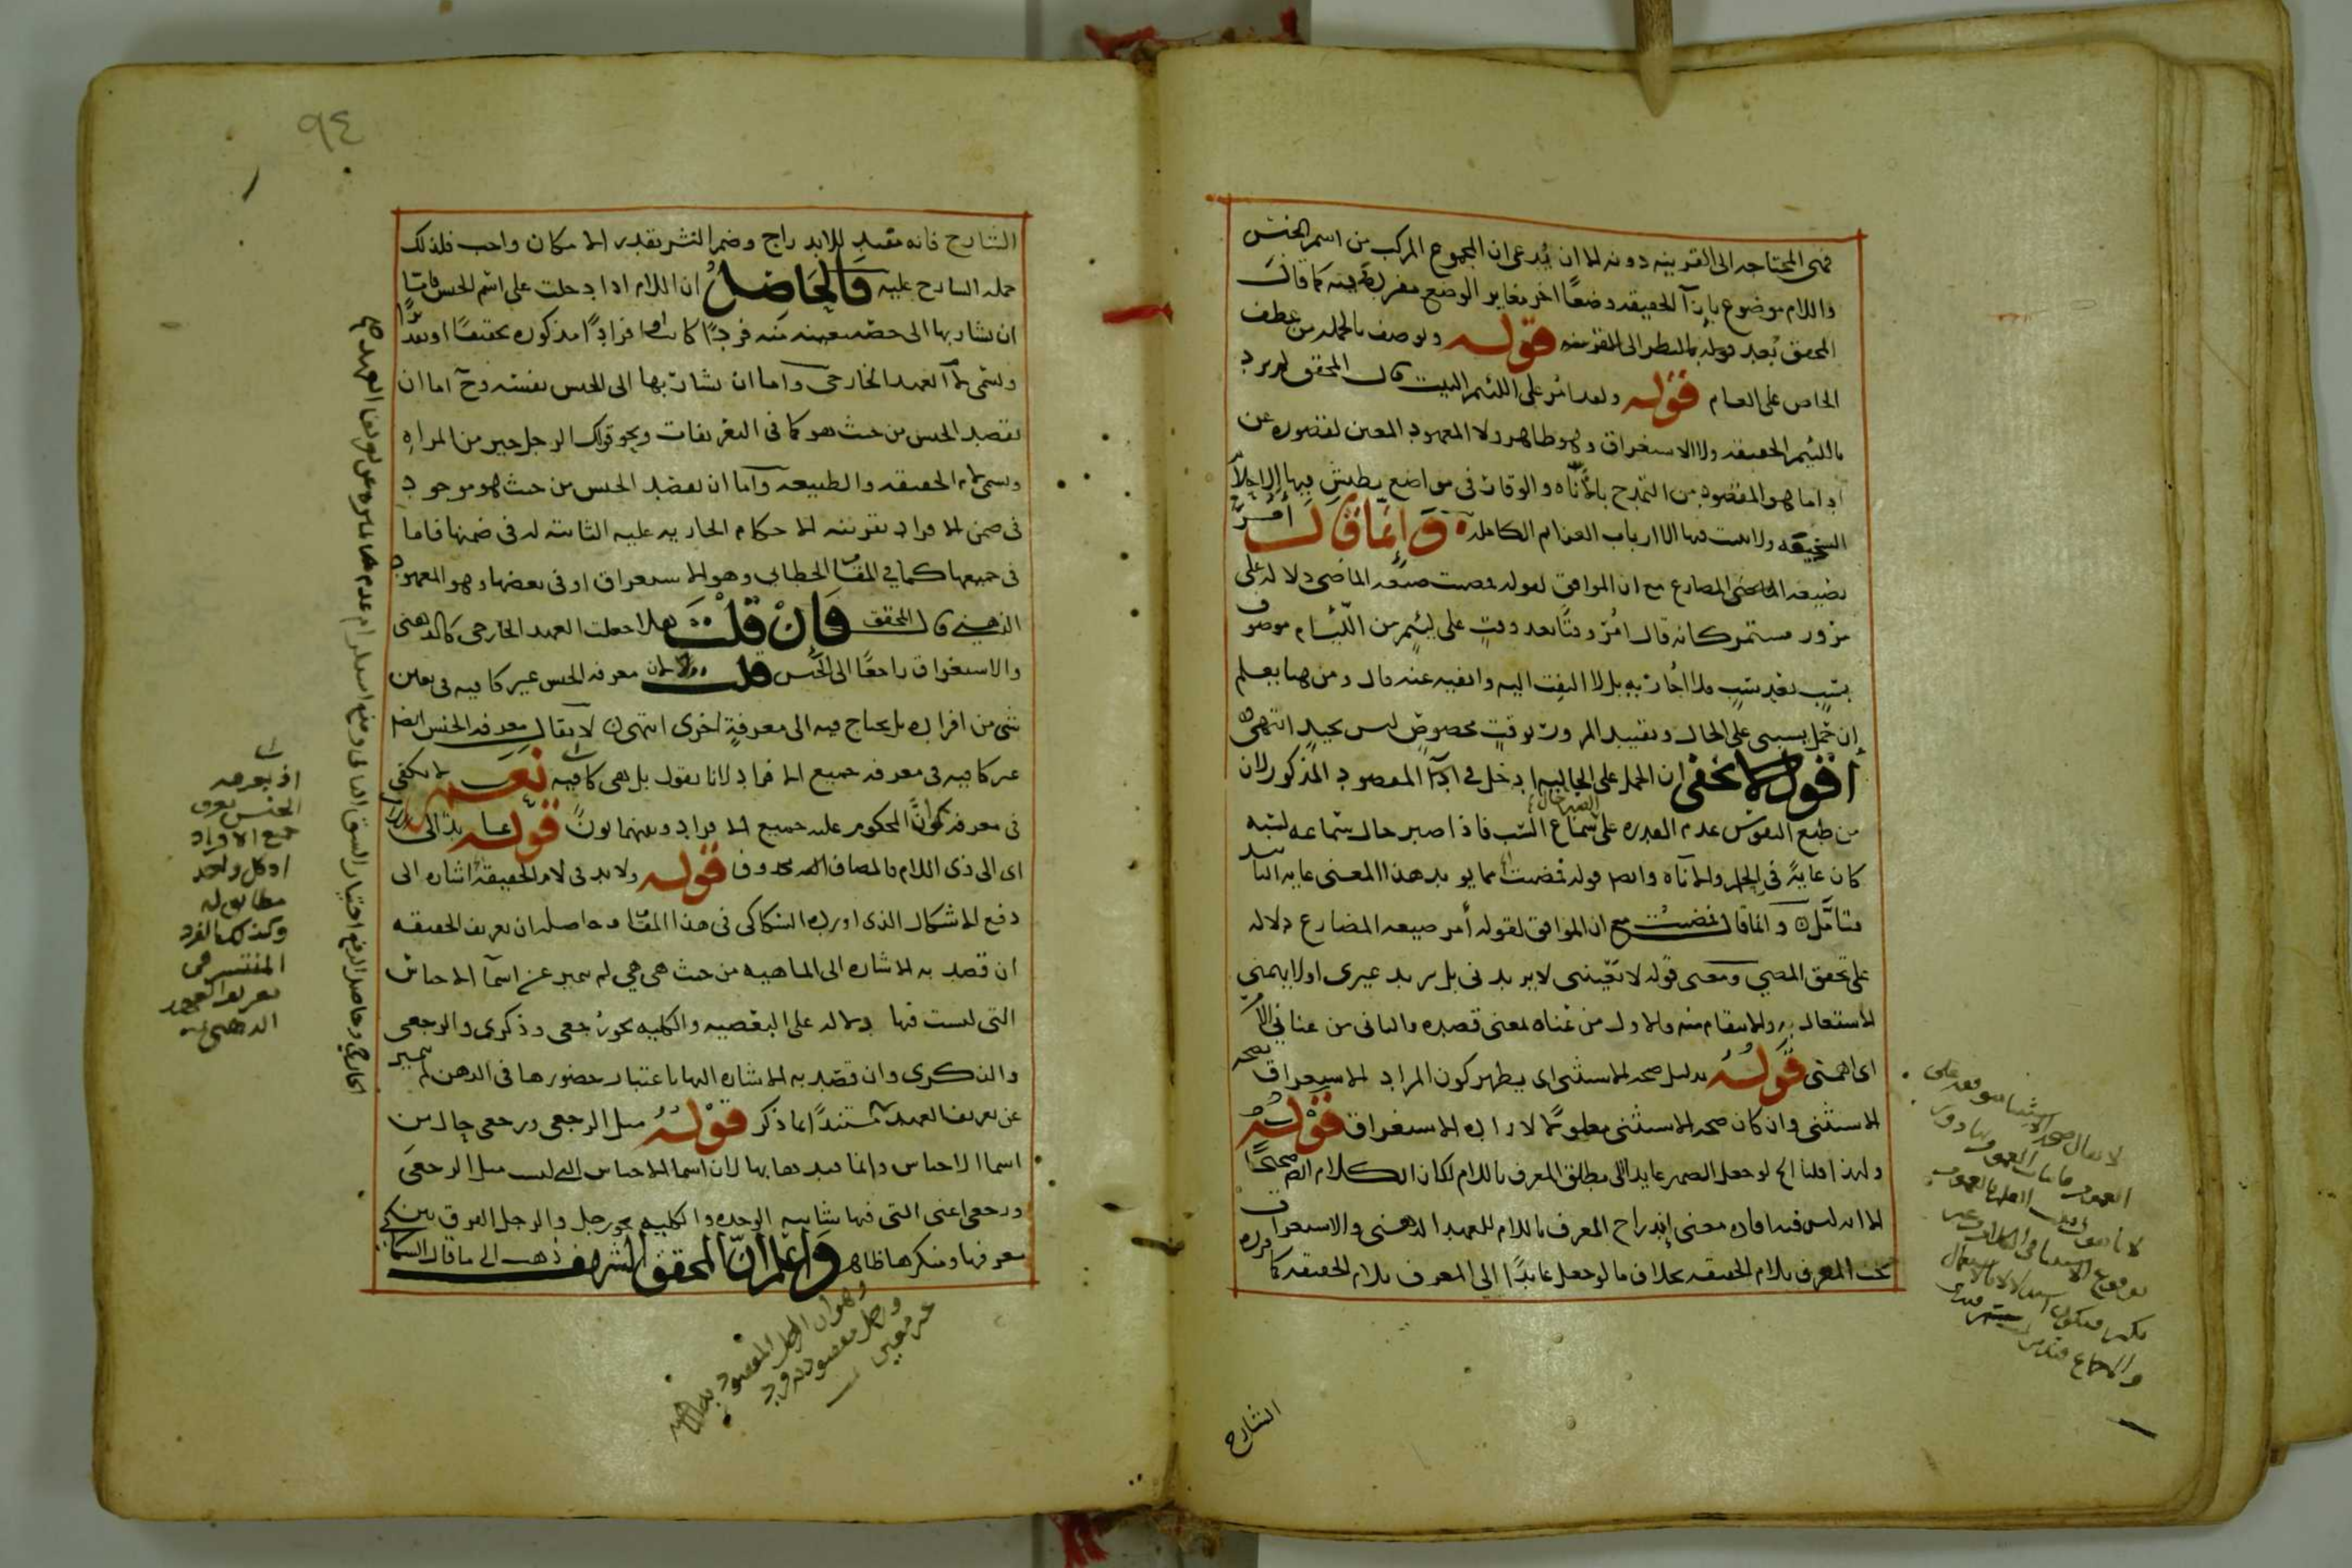 فهى المحتاجه الى القرينه دونه الا ان يُدعى ان المجموع المركب من اسم الجنس
واللام موضوع بازآ الحقيقه وضعًا اخر مغاير الوضع مفرديه كما قال
المحقق بُعيد قوله بالنظر الى القرينه قوله ويوصف بالجمله من عطف
الخاص على العام قوله ولقد امر على اللئيم البيت قال المحقق لم يرد
باللئيم الحقيقه ولا الاستغراق وهو ظاهر ولا المعهود المعين لقصوره عن
ادا ما هو المقصود من التمدح بالأناه والوقار فى مواضع يطيش فيها
السخيفه ولا يثبت فيها الا ارباب العزايم الكامله وَإنّما قَالَ أمُرُّ
بصيغه المضارع مع ان الموافق لقوله فمضيت صيغه الماضى دلاله على
مرور مستمر كانه قال امُرّ وقتًا بعد وقتٍ على لئيمٍ من اللّئام موصوف
بسَبٍّ بعد سَبٍّ ولا اُجازيه بل لا التفت اليه واتغيه عنه قال ومن هنا يعلم
إن حمل يسبنى على الحال وتقييد المرور بوقتٍ مخصوصٍ ليس بجيدٍ انتهى
اقول لا يخفى ان الحمل على الحاليه ادخل فى ادآ المقصود المذكور لان
من طبع النفوس عدم القدره على سماع السّب فاذا صبر حال سماعه لسبه
كان غايةً فى الحلم والاناه وايضا قوله فمضيت مما يويد هذا المعنى غايه التاييد
فتامّل وانما قال فمضيتُ مع ان الموافق لقوله أمر صيغه المضارع دلاله
على تحقق المضى ومعنى قوله لا يَعْنينى لا يريدنى بل يريد غيرى او لا يهمنى
الاشتغال به والانتقام منه والاول من عَناه بمعنى قصده والثانى من عنانى الامر
اى اهمّنى قَوْلُهُ بدليل صحه الاستثنى اى يظهر كون المراد الاستغراق بصحه
الاستثنى وان كان صحه الاستثنى معلومًا لاراده الاستغراق قوله
ولهذا قلنا الخ لو جعل الضمير عايدا الى مطلق المعرف باللام لكان الكلام ايضا صحيحًا
الا انه ليس فيه افاده معنى إندراج المعرف باللام للعهد الذهنى والاستغراق
تحت المعرف بلام الحقيقه بخلاف ما لو جعل عايدًا الى المعرف بلام الحقيقه كما قرره
الشارح
٩٤
الشارح فانه مفيد للاندراج وضم النشر بقدر الامكان واجب فلذلك
حمله الشارح عليه فَالحَاصِلُ ان اللام اذا دخلت على اسم الجنس فامّا
ان يشار بها الى حصه معينه منه فردًا كان او افرادًا مذكوره تحقيقًا او تقديرًا
وتسمى لام العهد الخارجى واما ان يشار بها الى الجنس نفسه وحَ اما ان
يقصد الجنس من حيث هو كما فى التعريفات ونحو قولك الرجل خير من المراه
وتسمى لام الحقيقه والطبيعه وآما ان يقصد الجنس من حيث هو موجود
فى ضمن الافراد بقرينه الاحكام الجاريه عليه الثابته له فى ضمنها فاما
فى جميعها كما فى المقام الخطابى وهو الاستغراق او فى بعضها وهو المعهود
الذهنى قال المحقق فَإنْ قلْتَ هلا جعلت العهد الخارجى كالذهنى
والاستغراق راجعًا الى الجنس قلت لان معرفه الجنس غير كافيه فى تعيين
شى من افراده بل يحتاج فيه الى معرفةٍ اخرى انتهى لا يقال معرفه الجنس ايضا
غير كافيه فى معرفه جميع الافراد لانا نقول بل هى كافيه نعم لا يكفى
فى معرفه كَون المحكوم عليه جميع الافراد وبينهما بونٌ قوله عايدا الى اللام
اى الى ذى اللام فالمضاف اليه محذوف قوله ولا بد فى لام الحقيقه اشاره الى
دفع الاشكال الذى اورده السكاكى فى هذا المقام وحاصله ان تعريف الحقيقه
ان قصد به الاشاره الى الماهيه من حيث هى هى لم يتميز عن اسمآ الاجناس
التى ليست فيها دلاله على البعضيه والكليه نحو رُجعى وذكرى والرجعى
والذكرى وان قصد به الاشاره اليها باعتبار حضورها فى الذهن لم يتميز
عن تعريف العهد مستندًا بما ذكر قَوْلُهُ مثل الرجعى ورجعى حال من
اسما الاجناس وانما قيدها بها لان اسما الاجناس التى ليست مثل الرجعى
ورجعى اعنى التى فيها شائبه الوحده والكليه نحو رجل والرجل الفرق بين
معرفها ومنكرها ظاهر وَاعْلم انّ المحقق الشريف ذهب الى ما قال السكاكى
اذ بمعرفه
الجنس يعرف
جميع الافراد
اذ كل واحد
مطابق له
وكذلك الفرد
المنتشر فى
تعريف العهد
الذهنى
وهو ان الرجل المقصود به
ورجل مقصود به فرد
غير معين